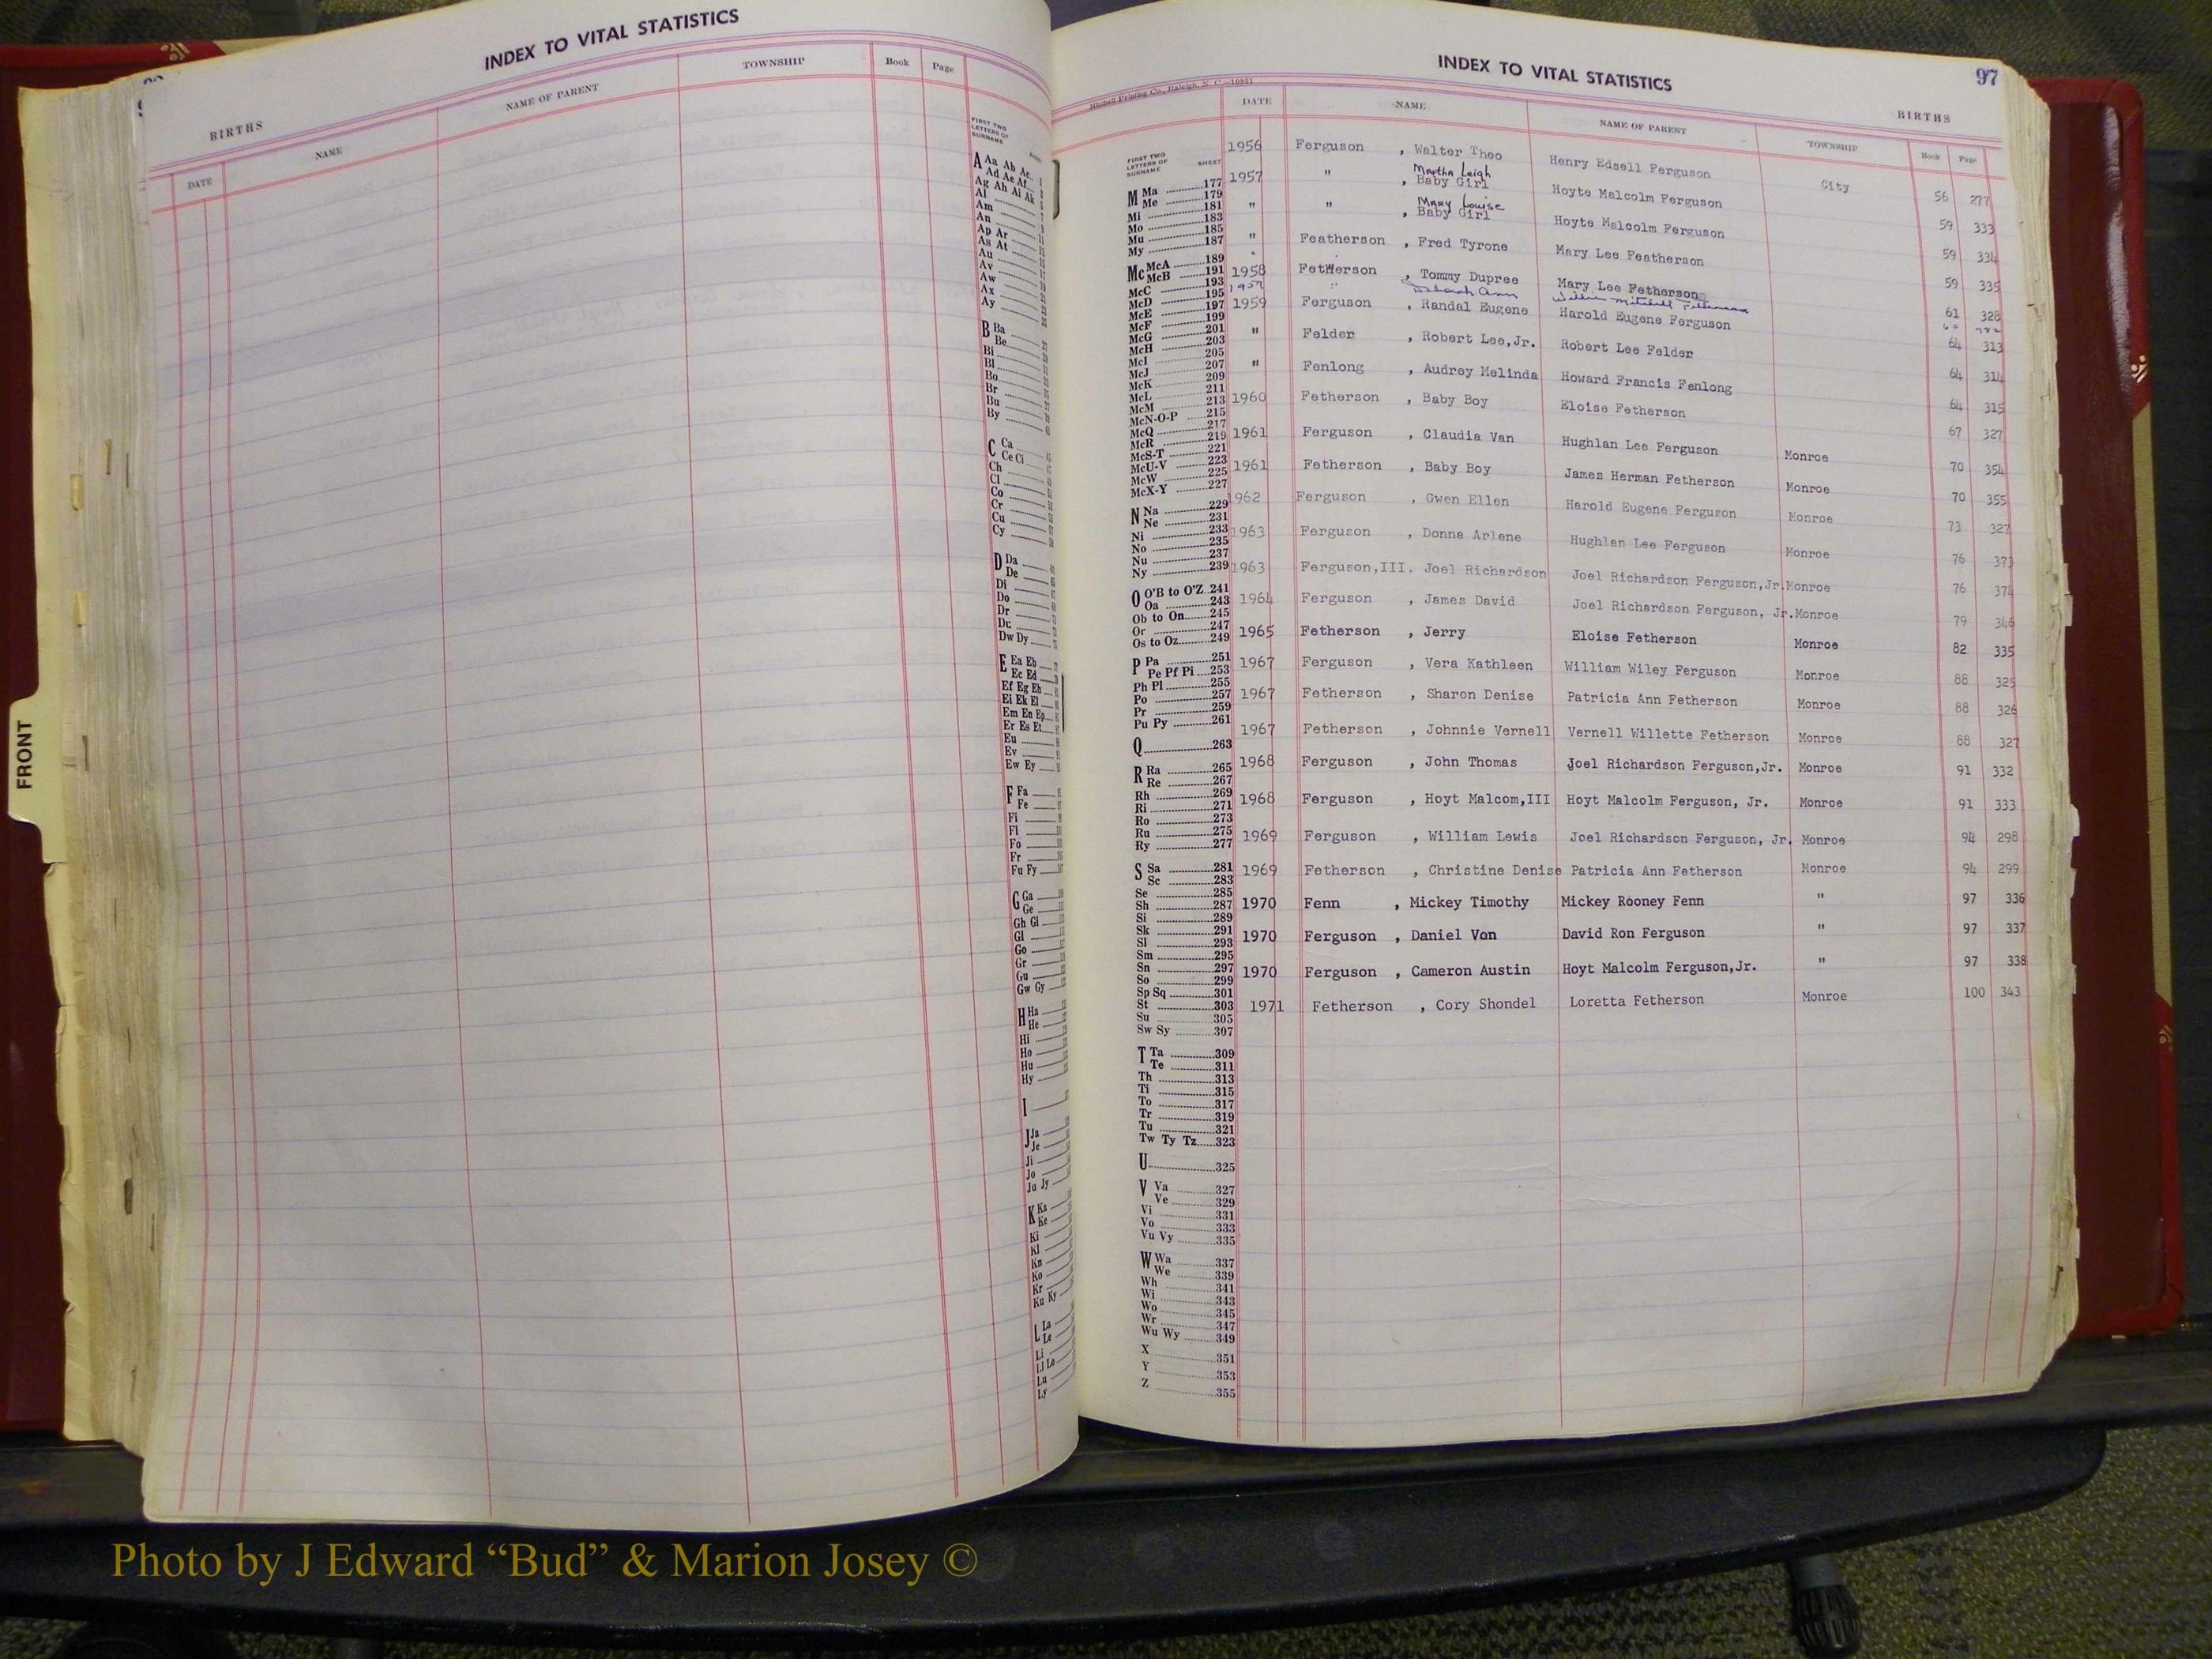 INDEX TO VITAL STATISTICS
BIRTHS
DATE NAME NAME OF PARENT TOWNSHIP Book Page
FIRST TWO
LETTERS OF
SURNAME
A Aa Ab Ac
Ad Ae Af
Ag Ah Ai Ak
Al
Am
An
Ap Ar
As At
Au
Av
Aw
Ax
Ay
B Ba
Be
Bi
Bl
Bo
Br
Bu
By
C Ca
Ce Ci
Ch
Cl
Co
Cr
Cu
Cy
D Da
De
Di
Do
Dr
Du
Dw Dy
E Ea Eb
Ec Ed
Ef Eg Eh
Ei Ek El
Em En Ep
Er Es Et
Eu
Ev
Ew Ey
F Fa
Fe
Fi
Fl
Fo
Fr
Fu Fy
G Ga
Ge
Gh Gi
Gl
Go
Gr
Gu
Gw Gy
H Ha
He
Hi
Ho
Hu
Hy
I
J Ja
Je
Ji
Jo
Ju Jy
K Ka
Ke
Ki
Kl
Kn
Ko
Kr
Ku Ky
L La
Le
Li
Ll Lo
Lu
Ly
FRONT
INDEX TO VITAL STATISTICS 97
Mitchell Printing Co., Raleigh, N. C.—10951
BIRTHS
DATE NAME NAME OF PARENT TOWNSHIP Book Page
FIRST TWO
LETTERS OF
SURNAME SHEET
M Ma 177
Me 179
Mi 181
Mo 183
Mu 185
My 187
Mc McA 189
McB 191
McC 193
McD 195
McE 197
McF 199
McG 201
McH 203
McI 205
McJ 207
McK 209
McL 211
McM 213
McN-O-P 215
McQ 217
McR 219
McS-T 221
McU-V 223
McW 225
McX-Y 227
N Na 229
Ne 231
Ni 233
No 235
Nu 237
Ny 239
O O'B to O'Z 241
Oa 243
Ob to On 245
Or 247
Os to Oz 249
P Pa 251
Pe Pf Pi 253
Ph Pl 255
Po 257
Pr 259
Pu Py 261
Q 263
R Ra 265
Re 267
Rh 269
Ri 271
Ro 273
Ru 275
Ry 277
S Sa 281
Sc 283
Se 285
Sh 287
Si 289
Sk 291
Sl 293
Sm 295
Sn 297
So 299
Sp Sq 301
St 303
Su 305
Sw Sy 307
T Ta 309
Te 311
Th 313
Ti 315
To 317
Tr 319
Tu 321
Tw Ty Tz 323
U 325
V Va 327
Ve 329
Vi 331
Vo 333
Vu Vy 335
W Wa 337
We 339
Wh 341
Wi 343
Wo 345
Wr 347
Wu Wy 349
X 351
Y 353
Z 355
1956 Ferguson , Walter Theo Henry Edsell Ferguson City 56 277
Martha Leigh
1957 " , Baby Girl Hoyte Malcolm Ferguson 59 333
Mary Louise
" " , Baby Girl Hoyte Malcolm Ferguson 59 334
" Featherson , Fred Tyrone Mary Lee Featherson 59 335
1958 Fetherson , Tommy Dupree Mary Lee Fetherson 61 328
1957 " Deborah Ann Willie Mitchell Fetherson
1959 Ferguson , Randal Eugene Harold Eugene Ferguson 64 313
" Felder , Robert Lee,Jr. Robert Lee Felder 64 314
" Fenlong , Audrey Melinda Howard Francis Fenlong 64 315
1960 Fetherson , Baby Boy Eloise Fetherson 67 327
1961 Ferguson , Claudia Van Hughlan Lee Ferguson Monroe 70 354
1961 Fetherson , Baby Boy James Herman Fetherson Monroe 70 355
1962 Ferguson , Gwen Ellen Harold Eugene Ferguson Monroe 73 327
1963 Ferguson , Donna Arlene Hughlan Lee Ferguson Monroe 76 373
1963 Ferguson,III. Joel Richardson Joel Richardson Ferguson,Jr.Monroe 76 374
1964 Ferguson , James David Joel Richardson Ferguson, Jr.Monroe 79 346
1965 Fetherson , Jerry Eloise Fetherson Monroe 82 335
1967 Ferguson , Vera Kathleen William Wiley Ferguson Monroe 88 325
1967 Fetherson , Sharon Denise Patricia Ann Fetherson Monroe 88 326
1967 Fetherson , Johnnie Vernell Vernell Willette Fetherson Monroe 88 327
1968 Ferguson , John Thomas Joel Richardson Ferguson,Jr. Monroe 91 332
1968 Ferguson , Hoyt Malcom,III Hoyt Malcolm Ferguson, Jr. Monroe 91 333
1969 Ferguson , William Lewis Joel Richardson Ferguson, Jr. Monroe 94 298
1969 Fetherson , Christine Denise Patricia Ann Fetherson Monroe 94 299
1970 Fenn , Mickey Timothy Mickey Rooney Fenn " 97 336
1970 Ferguson , Daniel Von David Ron Ferguson " 97 337
1970 Ferguson , Cameron Austin Hoyt Malcolm Ferguson,Jr. " 97 338
1971 Fetherson , Cory Shondel Loretta Fetherson Monroe 100 343
Photo by J Edward “Bud” & Marion Josey ©